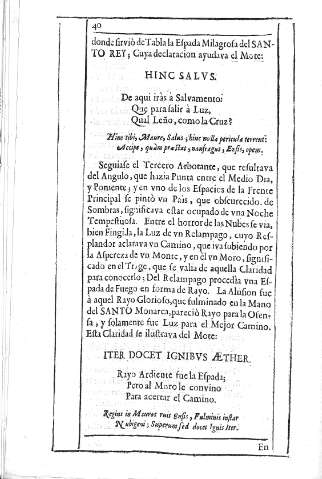 40
donde sirviò de Tabla la Espada Milagrosa del SAN-
TO REY; Cuya declaracion ayudava el Mote:
HINC SALVS.
De aqui iràs à Salvamento:
Que para salir à Luz,
Qual Leño, como la Cruz?
Hinc tibi, Maure, Salus; hinc nulla pericula terrent:
Accipe, quàm præstat, naufragus, Ensis, opem.
Seguiase el Tercero Arbotante, que resultava
del Angulo, que hazia Punta entre el Medio Dia,
y Poniente; y en vno de los Espacios de la Frente
Principal se pintò vn Pais, que obscurecido de
Sombras, significava estar ocupado de vna Noche
Tempestuosa. Entre el horror de las Nubes se via,
bien Fingida, la Luz de vn Relampago, cuyo Res-
plandor aclarava vn Camino, que iva subiendo por
la Aspereza de vn Monte, y en èl vn Moro, signifi-
cado en el Trage, que se valia de aquella Claridad
para conocerlo: Del Relampago procedia vna Es-
pada de Fuego en forma de Rayo. La Alusion fue
à aquel Rayo Glorioso, que fulminado en la Mano
del SANTO Monarca, pareciò Rayo para la Ofen-
sa, y solamente fue Luz para el Mejor Camino.
Esta Claridad se ilustrava del Mote:
ITER DOCET IGNIBVS ÆTHER.
Rayo Ardiente fue la Espada;
Pero al Moro le convino
Para acertar el Camino.
Regius in Mauros ruit Ensis, Fulminis instar
Nubigeni; Superum sed docet Ignis Iter.
En